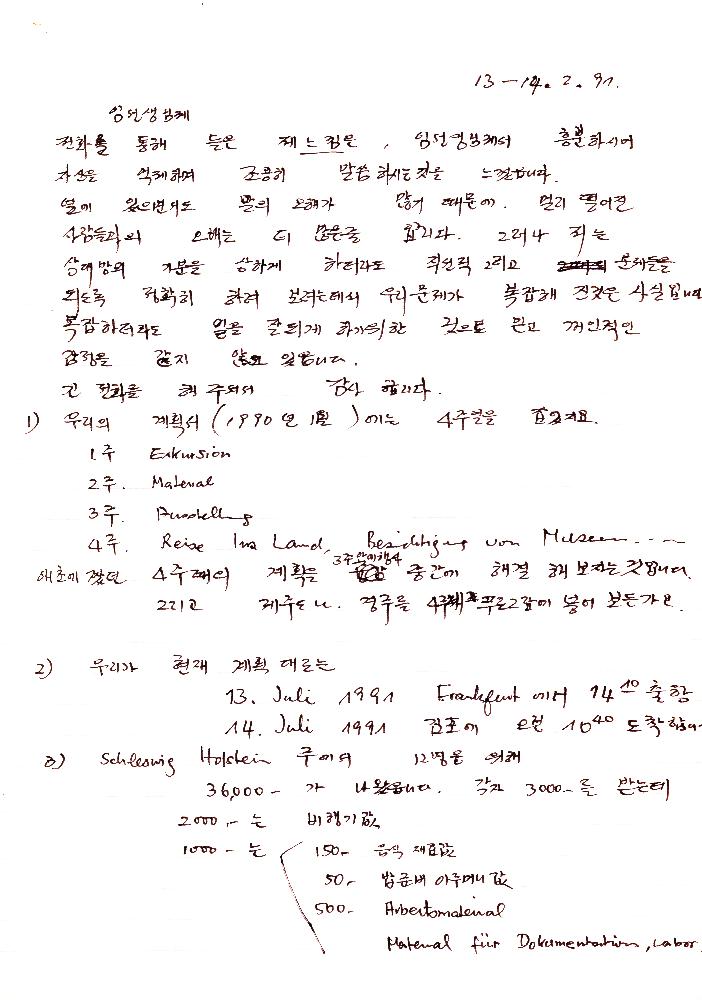 13 – 14. 2. 91.
임선생님께
전화를 통해 들은 제 느낌은, 임선생님께서 흥분하시어
자신을 억제하며 조용히 말씀하시는 것을 느꼈습니다.
옆에 있으면서도 말의 오해가 많기 때문에. 멀리 떨어진
사람들과의 오해는 더 많은줄 압니다. 그러나 저는
상대방의 기분을 상하게 하더라도 직선적 그리고 문제들을
되도록 정확히 하려 보려는데서 우리문제가 복잡해 진것은 사실입니다
복잡하더라도 일을 잘되게 하기위한 것으로 믿고 개인적인
감정을 갖지 않고 있습니다.
곧 전화를 해 주셔서 감사 합니다.
1) 우리의 계획서 (1990 년 1월 )에는 4주열을
1주 Exkursion
2주. Material
3주. Ausstellung
4주. Reise ins Land, Besichtigung von Museen ....
애초에 짰던 4주째의 계획을 3주 중간에 해결 해 보자는것입니다.
그리고 제주도나. 경주를 4주째 프로그람에 넣어 보든가요.
2) 우리가 현재 계획 대로는
13. Juli 1991 Frankfurt 에서 14 10 출항
14. Juli 1991 김포에 오전 10 40 도착합니다
3) Schleswig Holstein 주에서 12명을 위해
36,000 – 가 나왔습니다. 각자 3000 – 를 받는데
2000,– 는 비행기값
1000 – 는 150,– 음식 재료값
50,– 밥준비 아주머니 값
500,– Arbeitsmaterial
Material für Dokumentation, Labor